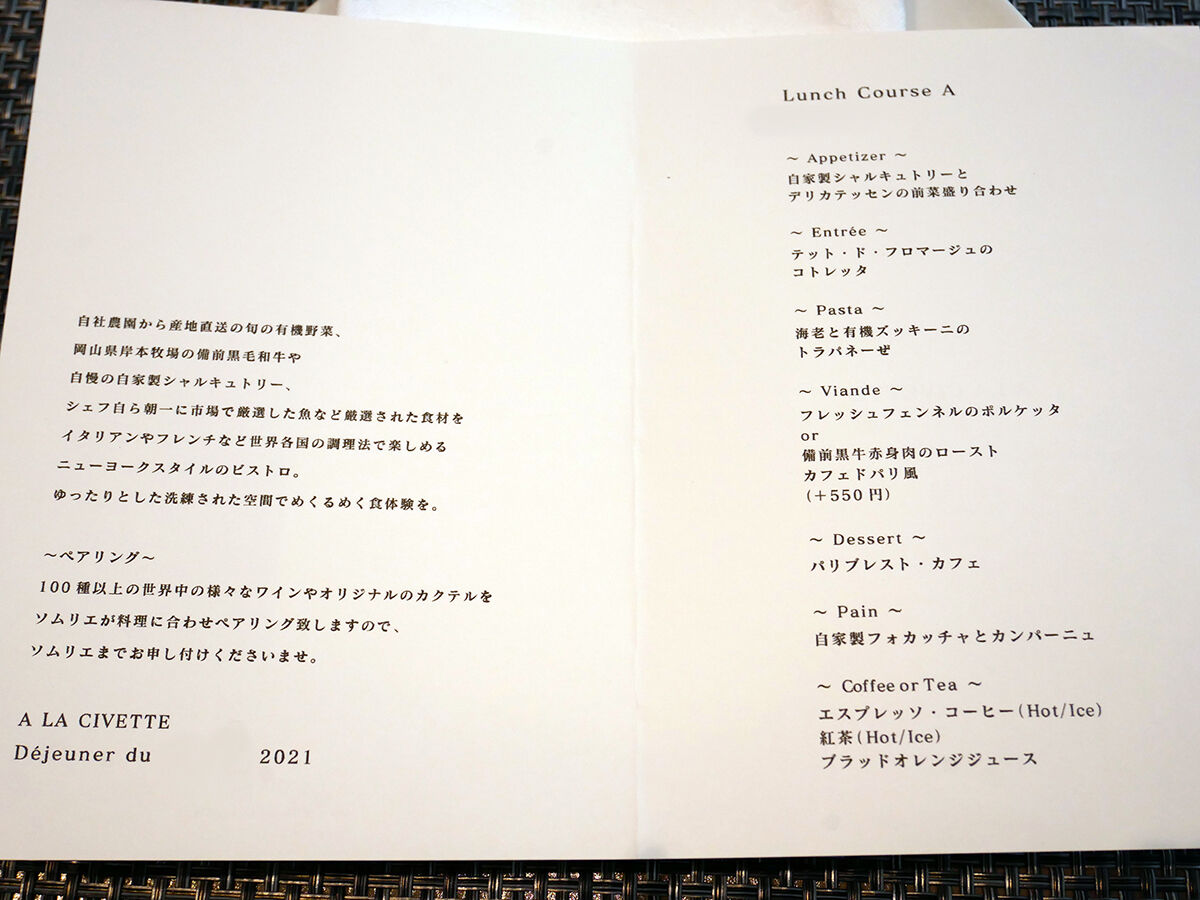 自社農園から産地直送の旬の有機野菜、
岡山県岸本牧場の備前黒毛和牛や
自慢の自家製シャルキュトリー、
シェフ自ら朝一に市場で厳選した魚など厳選された食材を
イタリアンやフレンチなど世界各国の調理法で楽しめる
ニューヨークスタイルのビストロ。
ゆったりとした洗練された空間でめくるめく食体験を。
～ペアリング～
100種以上の世界中の様々なワインやオリジナルのカクテルを
ソムリエが料理に合わせペアリング致しますので、
ソムリエまでお申し付けくださいませ。
A LA CIVETTE
Déjeuner du 2021
Lunch Course A
～ Appetizer ～
自家製シャルキュトリーと
デリカテッセンの前菜盛り合わせ
～ Entrée ～
テット・ド・フロマージュの
コトレッタ
～ Pasta ～
海老と有機ズッキーニの
トラパネーぜ
～ Viande ～
フレッシュフェンネルのポルケッタ
or
備前黒牛赤身肉のロースト
カフェドパリ風
(＋550円)
～ Dessert ～
パリブレスト・カフェ
～ Pain ～
自家製フォカッチャとカンパーニュ
～ Coffee or Tea ～
エスプレッソ・コーヒー(Hot/Ice)
紅茶(Hot/Ice)
ブラッドオレンジジュース